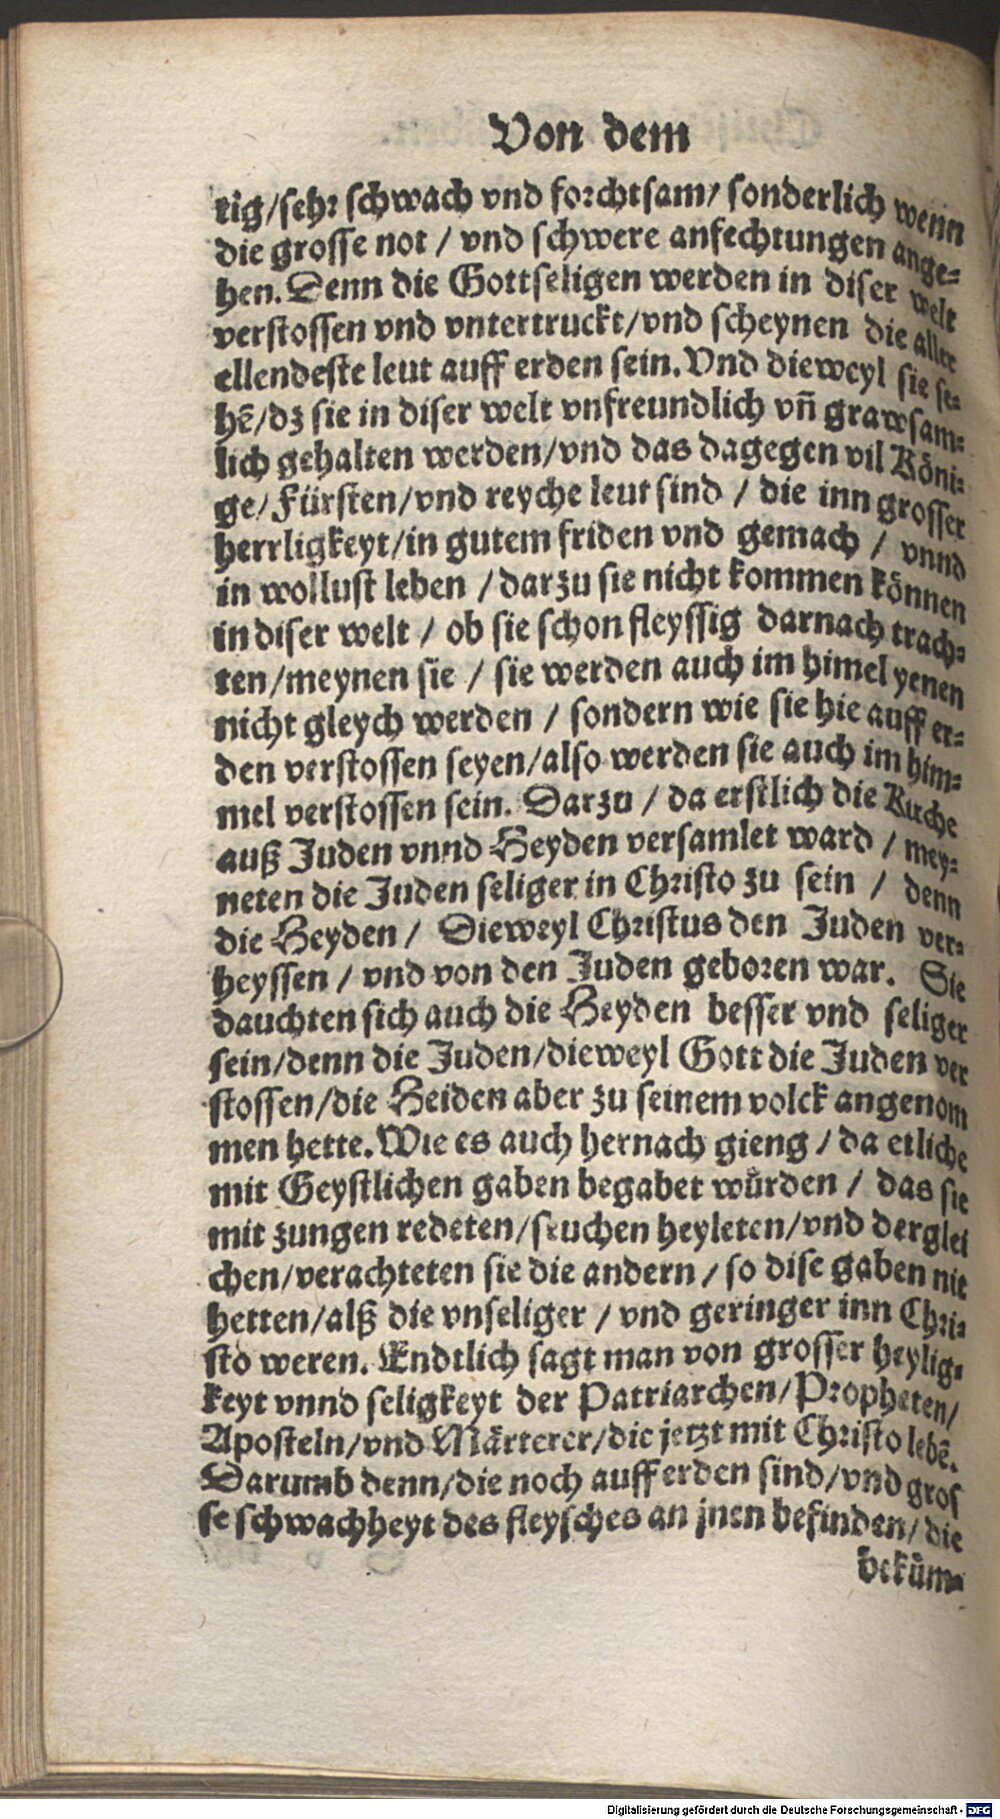 Von dem
tig/sehr schwach vnd forchtsam/ sonderlich wenn
die grosse not / vnd schwere anfechtungen ange-
hen. Denn die Gottseligen werden in diser welt
verstossen vnd vntertruckt/vnd scheynen die aller
ellendeste leut auff erden sein. Vnd dieweyl sie se-
hẽ/dz sie in diser welt vnfreundlich vñ grawsam-
lich gehalten werden/vnd das dagegen vil Köni-
ge/Fürsten/vnd reyche leut sind / die inn grosser
herrligkeyt/in gutem friden vnd gemach / vnnd
in wollust leben / darzu sie nicht kommen können
in diser welt / ob sie schon fleyssig darnach trach-
ten/meynen sie / sie werden auch im himel yenen
nicht gleych werden / sondern wie sie hie auff er-
den verstossen seyen/also werden sie auch im him-
mel verstossen sein. Darzu / da erstlich die Kirche
auß Juden vnnd Heyden versamlet ward / mey-
neten die Juden seliger in Christo zu sein / denn
die Heyden / Dieweyl Christus den Juden ver-
heyssen / vnd von den Juden geboren war. Sie
dauchten sich auch die Heyden besser vnd seliger
sein/denn die Juden/dieweyl Gott die Juden ver
stossen/die Heiden aber zu seinem volck angenom
men hette. Wie es auch hernach gieng / da etliche
mit Geystlichen gaben begabet wůrden / das sie
mit zungen redeten/seuchen heyleten/vnd derglei
chen/verachteten sie die andern / so dise gaben nit
hetten/alß die vnseliger / vnd geringer inn Chri-
sto weren. Endtlich sagt man von grosser heylig-
keyt vnnd seligkeyt der Patriarchen/Propheten/
Aposteln/vnd Märterer/die jetzt mit Christo lebẽ.
Darumb denn/die noch auff erden sind/vnd gros
se schwachheyt des fleysches an jnen befinden/die
bekům-
Digitalisierung gefördert durch die Deutsche Forschungsgemeinschaft - DFG